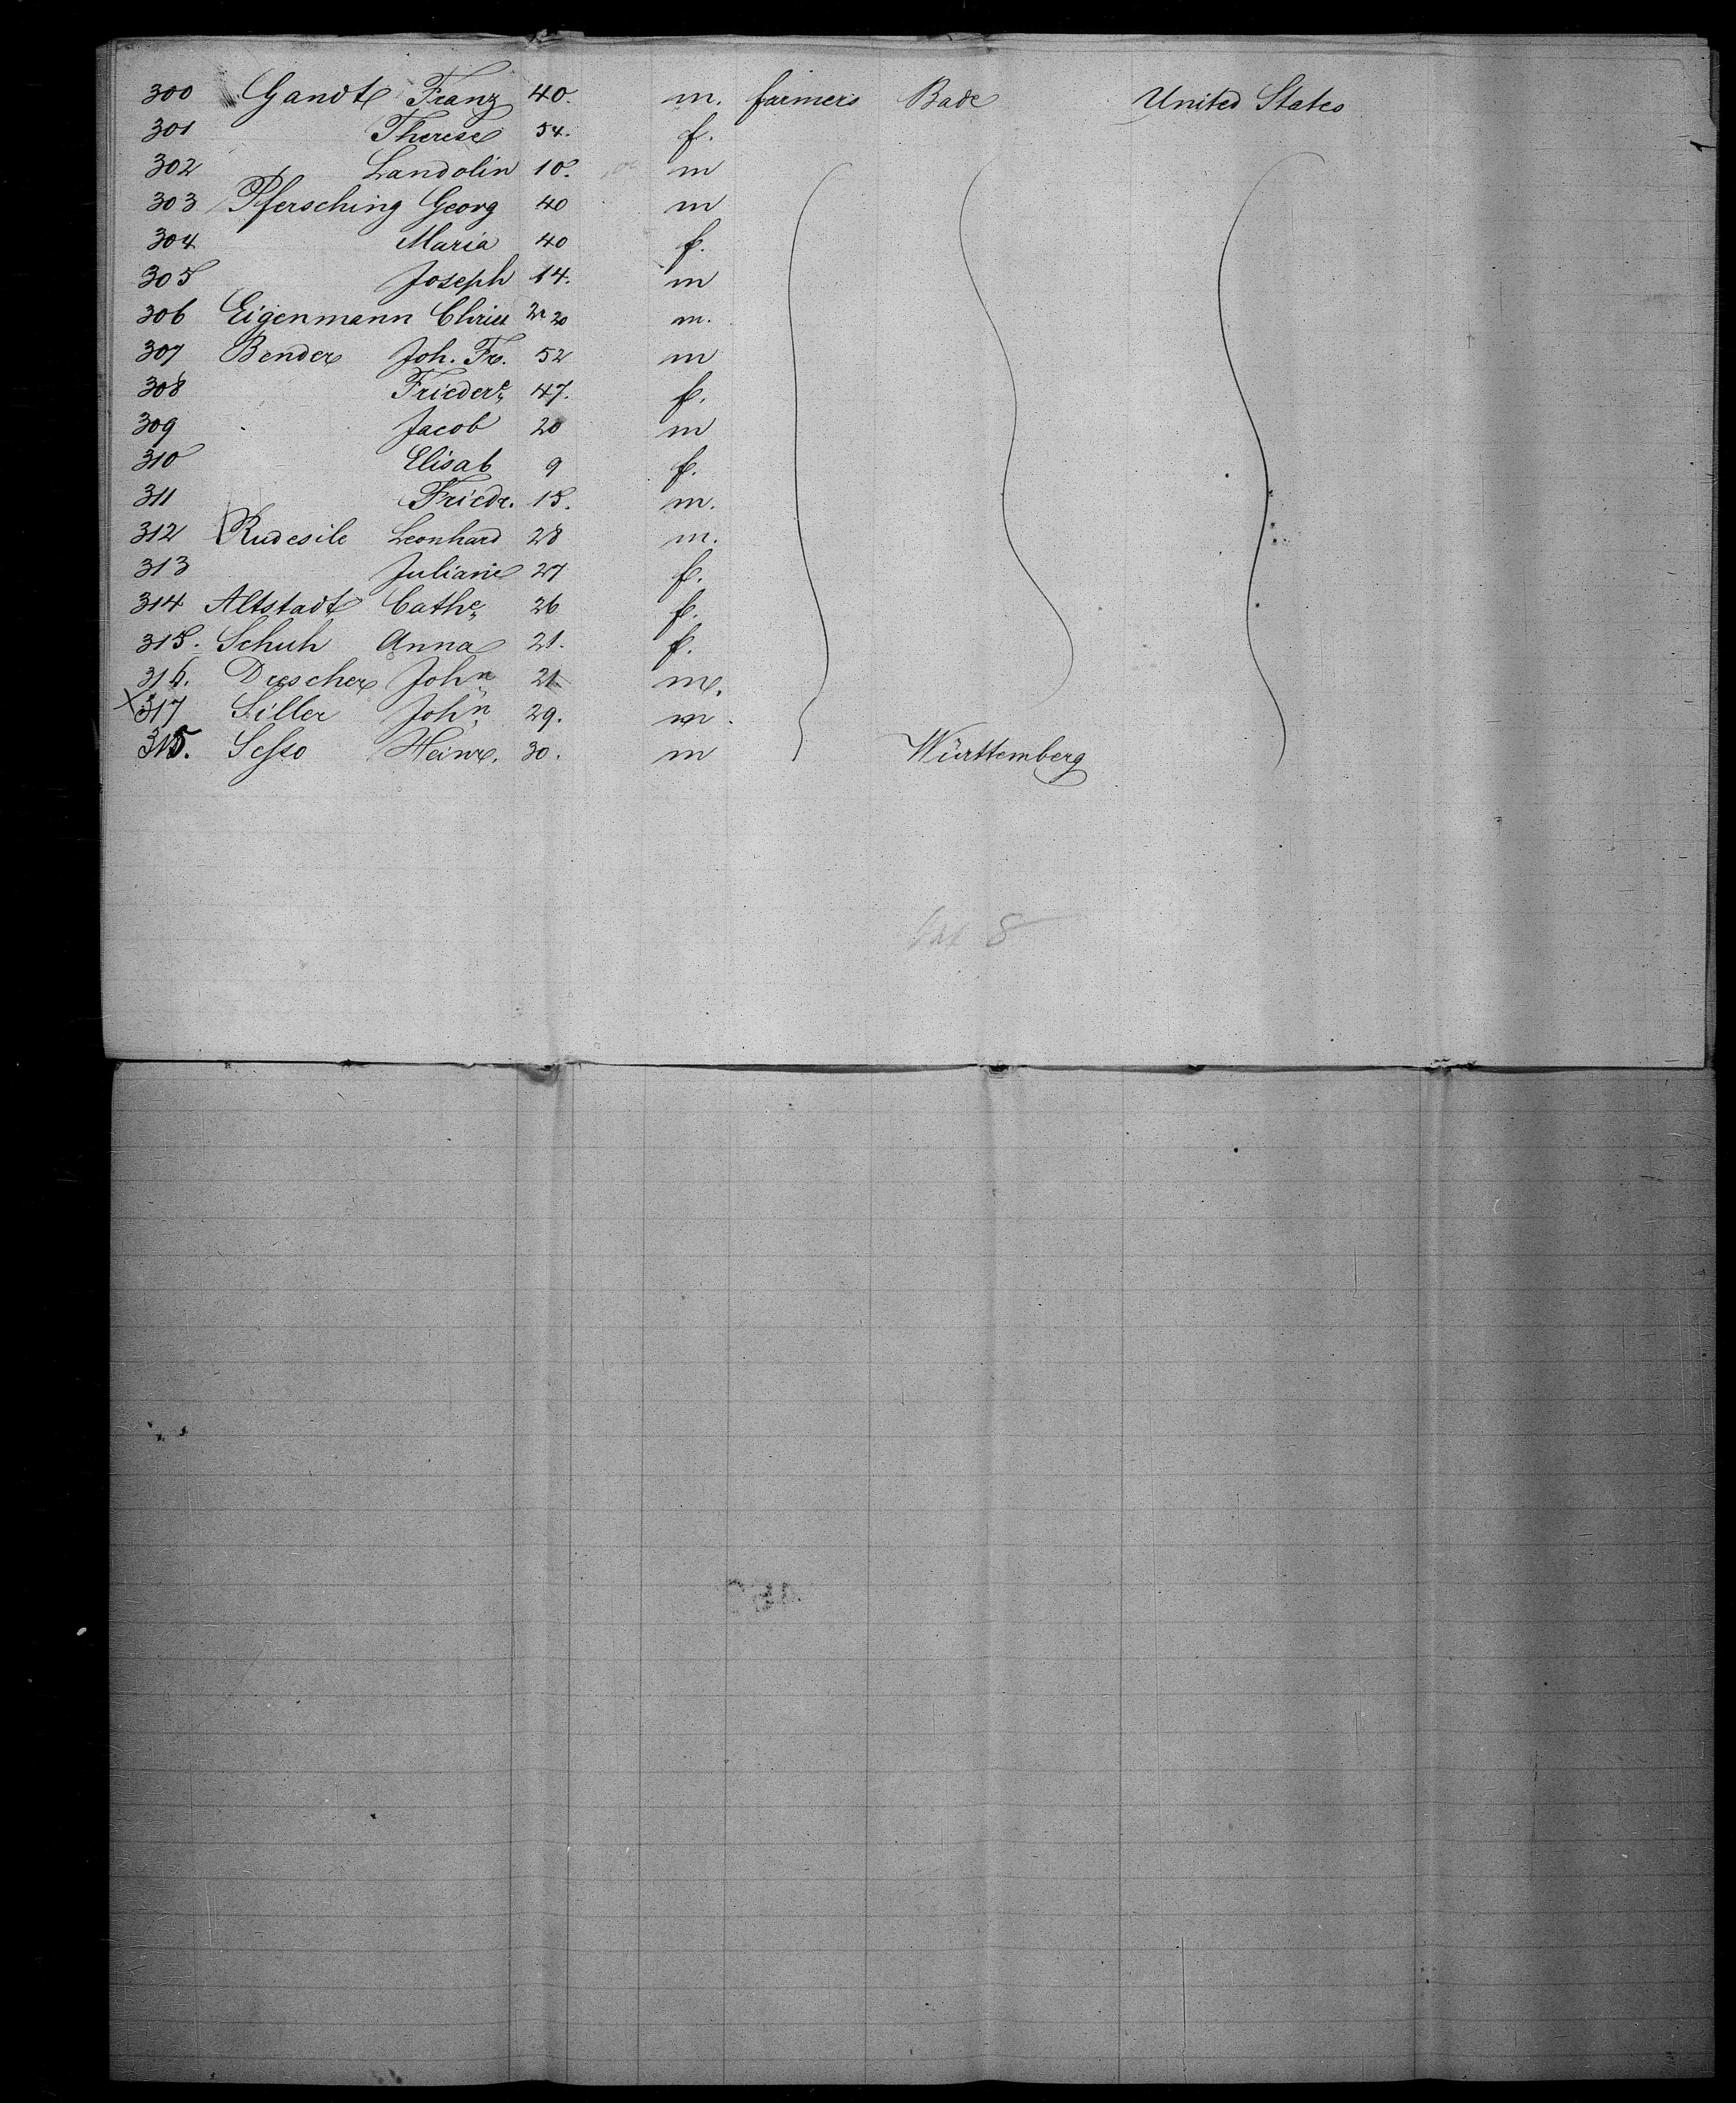 300 Gandt Franz 40. m. farmers Bade United States
301 Therese 54. f.
302 Landolin 10. m
303 Pfersching Georg 40 m
304 Maria 40 f.
305 Joseph 14. m
306 Eigenmann Christ 20 m.
307 Bender Joh. Fr. 52 m
308 Friedere 47. f.
309 Jacob 20 m
310 Elisab 9 f.
311 Friedr. 15. m.
312 Rudesile Leonhard 28 m.
313 Juliane 27 f.
314 Altstadt Cathe 26 f.
315. Schuh Anna 21. f.
316. Drescher John 21 m.
X 317 Siller John 29. m.
315. Sesso Heinr. 30. m Württemberg
8